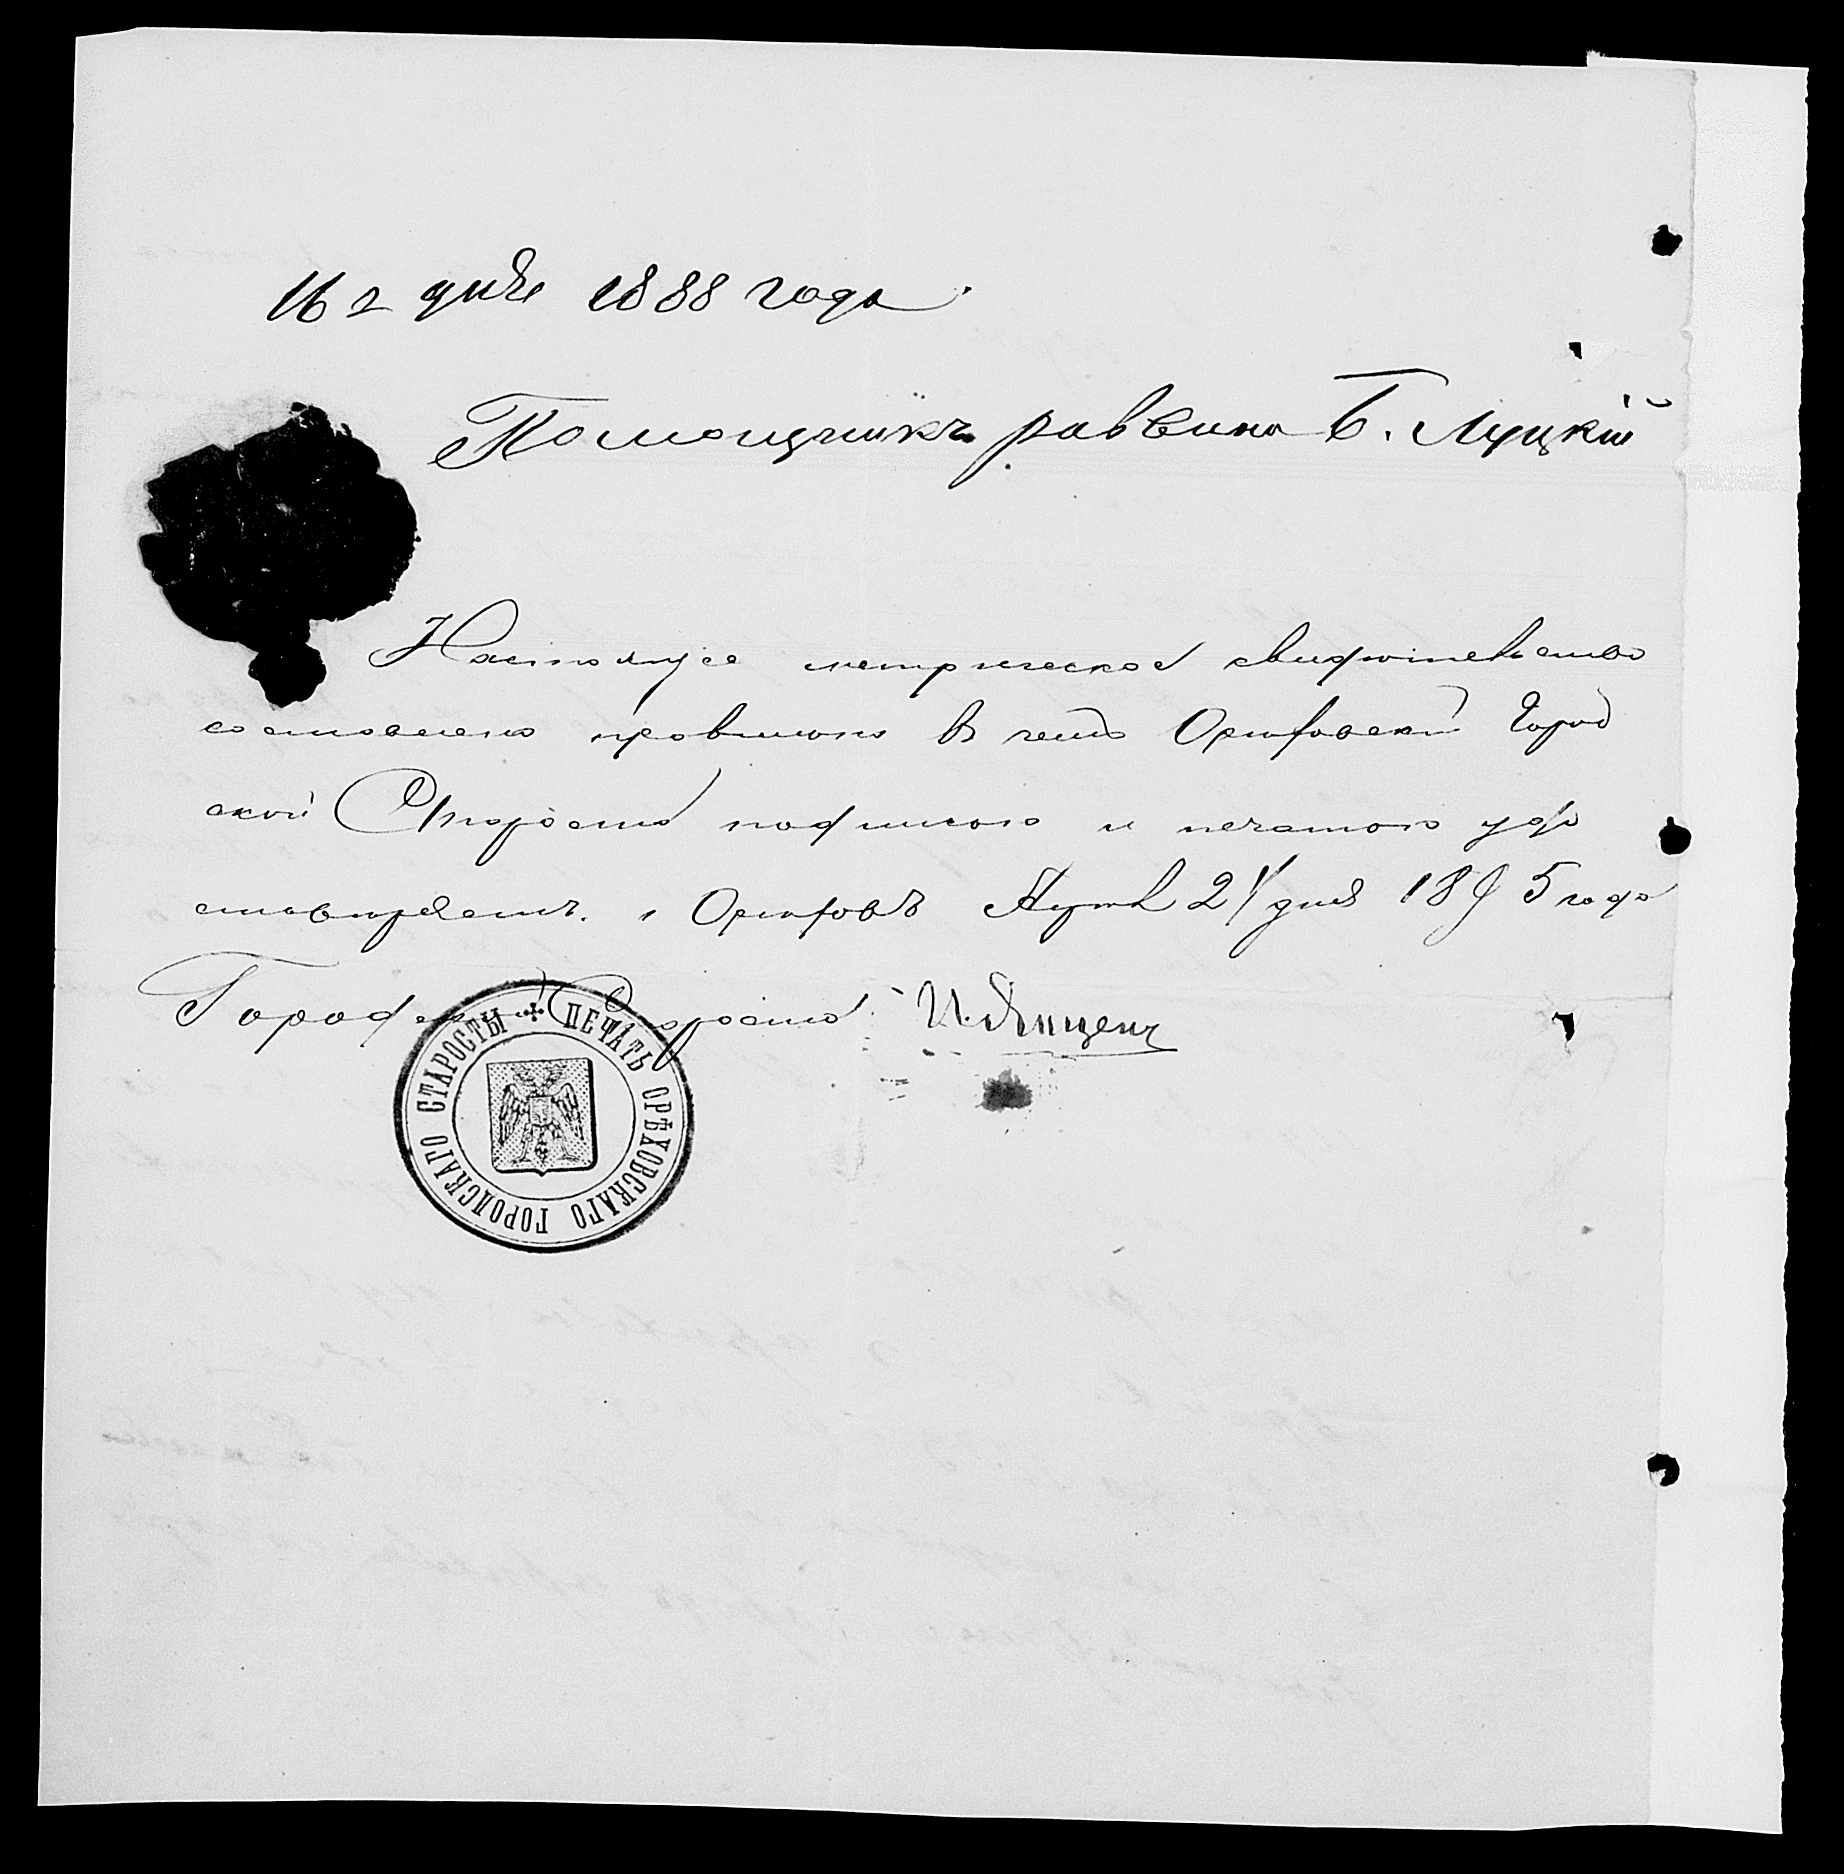 16 2 дня 1888 года.
Помощникъ раввина Б. Луцкій
Настоящее метрическое свидѣтельство
составлено правильно въ чемъ Орѣховскій Город
ской Староста подписью и печатью удо
стовѣряетъ. г Орѣховъ 21 дня 1895 года
Городской Староста
ПЕЧАТЬ ОРѢХОВСКАГО ГОРОДСКАГО СТАРОСТЫ